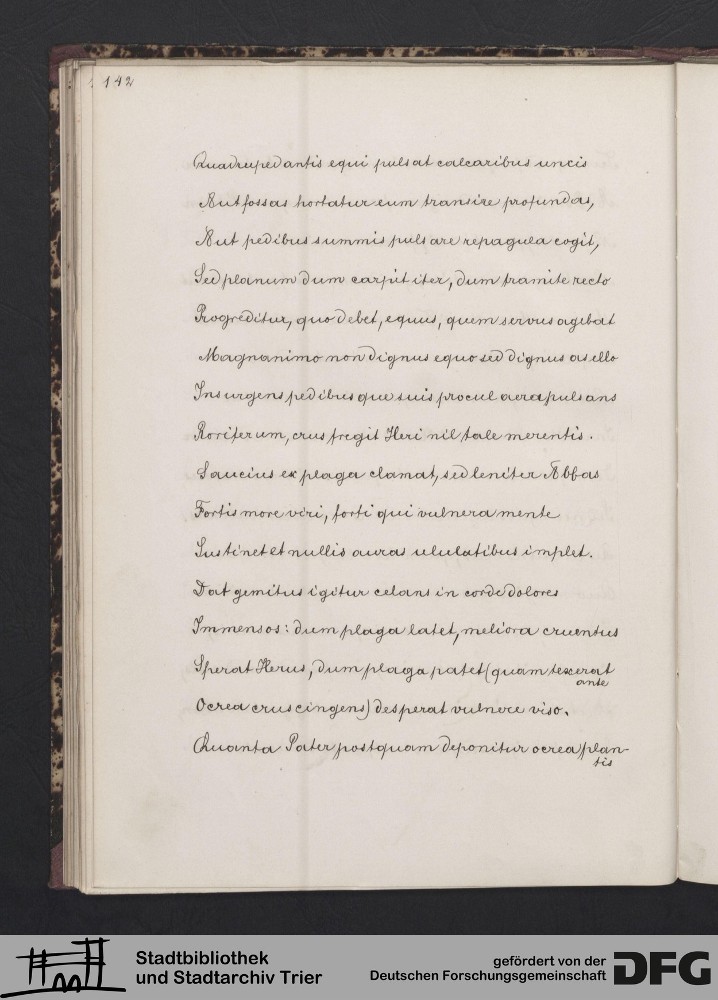 142
Quadrupedantis equi pulsat calcaribus uncis
Aut fossas hortatur eum transire profundas,
Aut pedibus summis pulsare repagula cogit,
Sed planum dum carpit iter, dum tramite recto
Progreditur, quo debet, equus, quem servus agebat
Magnanimo non dignus equo sed dignus asello
Insurgens pedibusque suis procul aera pulsans
Roriferum, crus fregit Heri nil tale merentis.
Saucius ex plaga clamat, sed leniter Abbas
Fortis more viri, forti qui vulnera mente
Sustinet et nullis auras ululatibus implet.
Dat gemitus igitur celans in corde dolores
Immensos: dum plaga latet, meliora cruentus
Sperat Herus, dum plaga patet (quam texerat
ante
Ocrea crus cingens) desperat vulnere viso.
Quanta Pater postquam deponitur ocrea plan-
tis
Stadtbibliothek
und Stadtarchiv Trier
gefördert von der
Deutschen Forschungsgemeinschaft
DFG